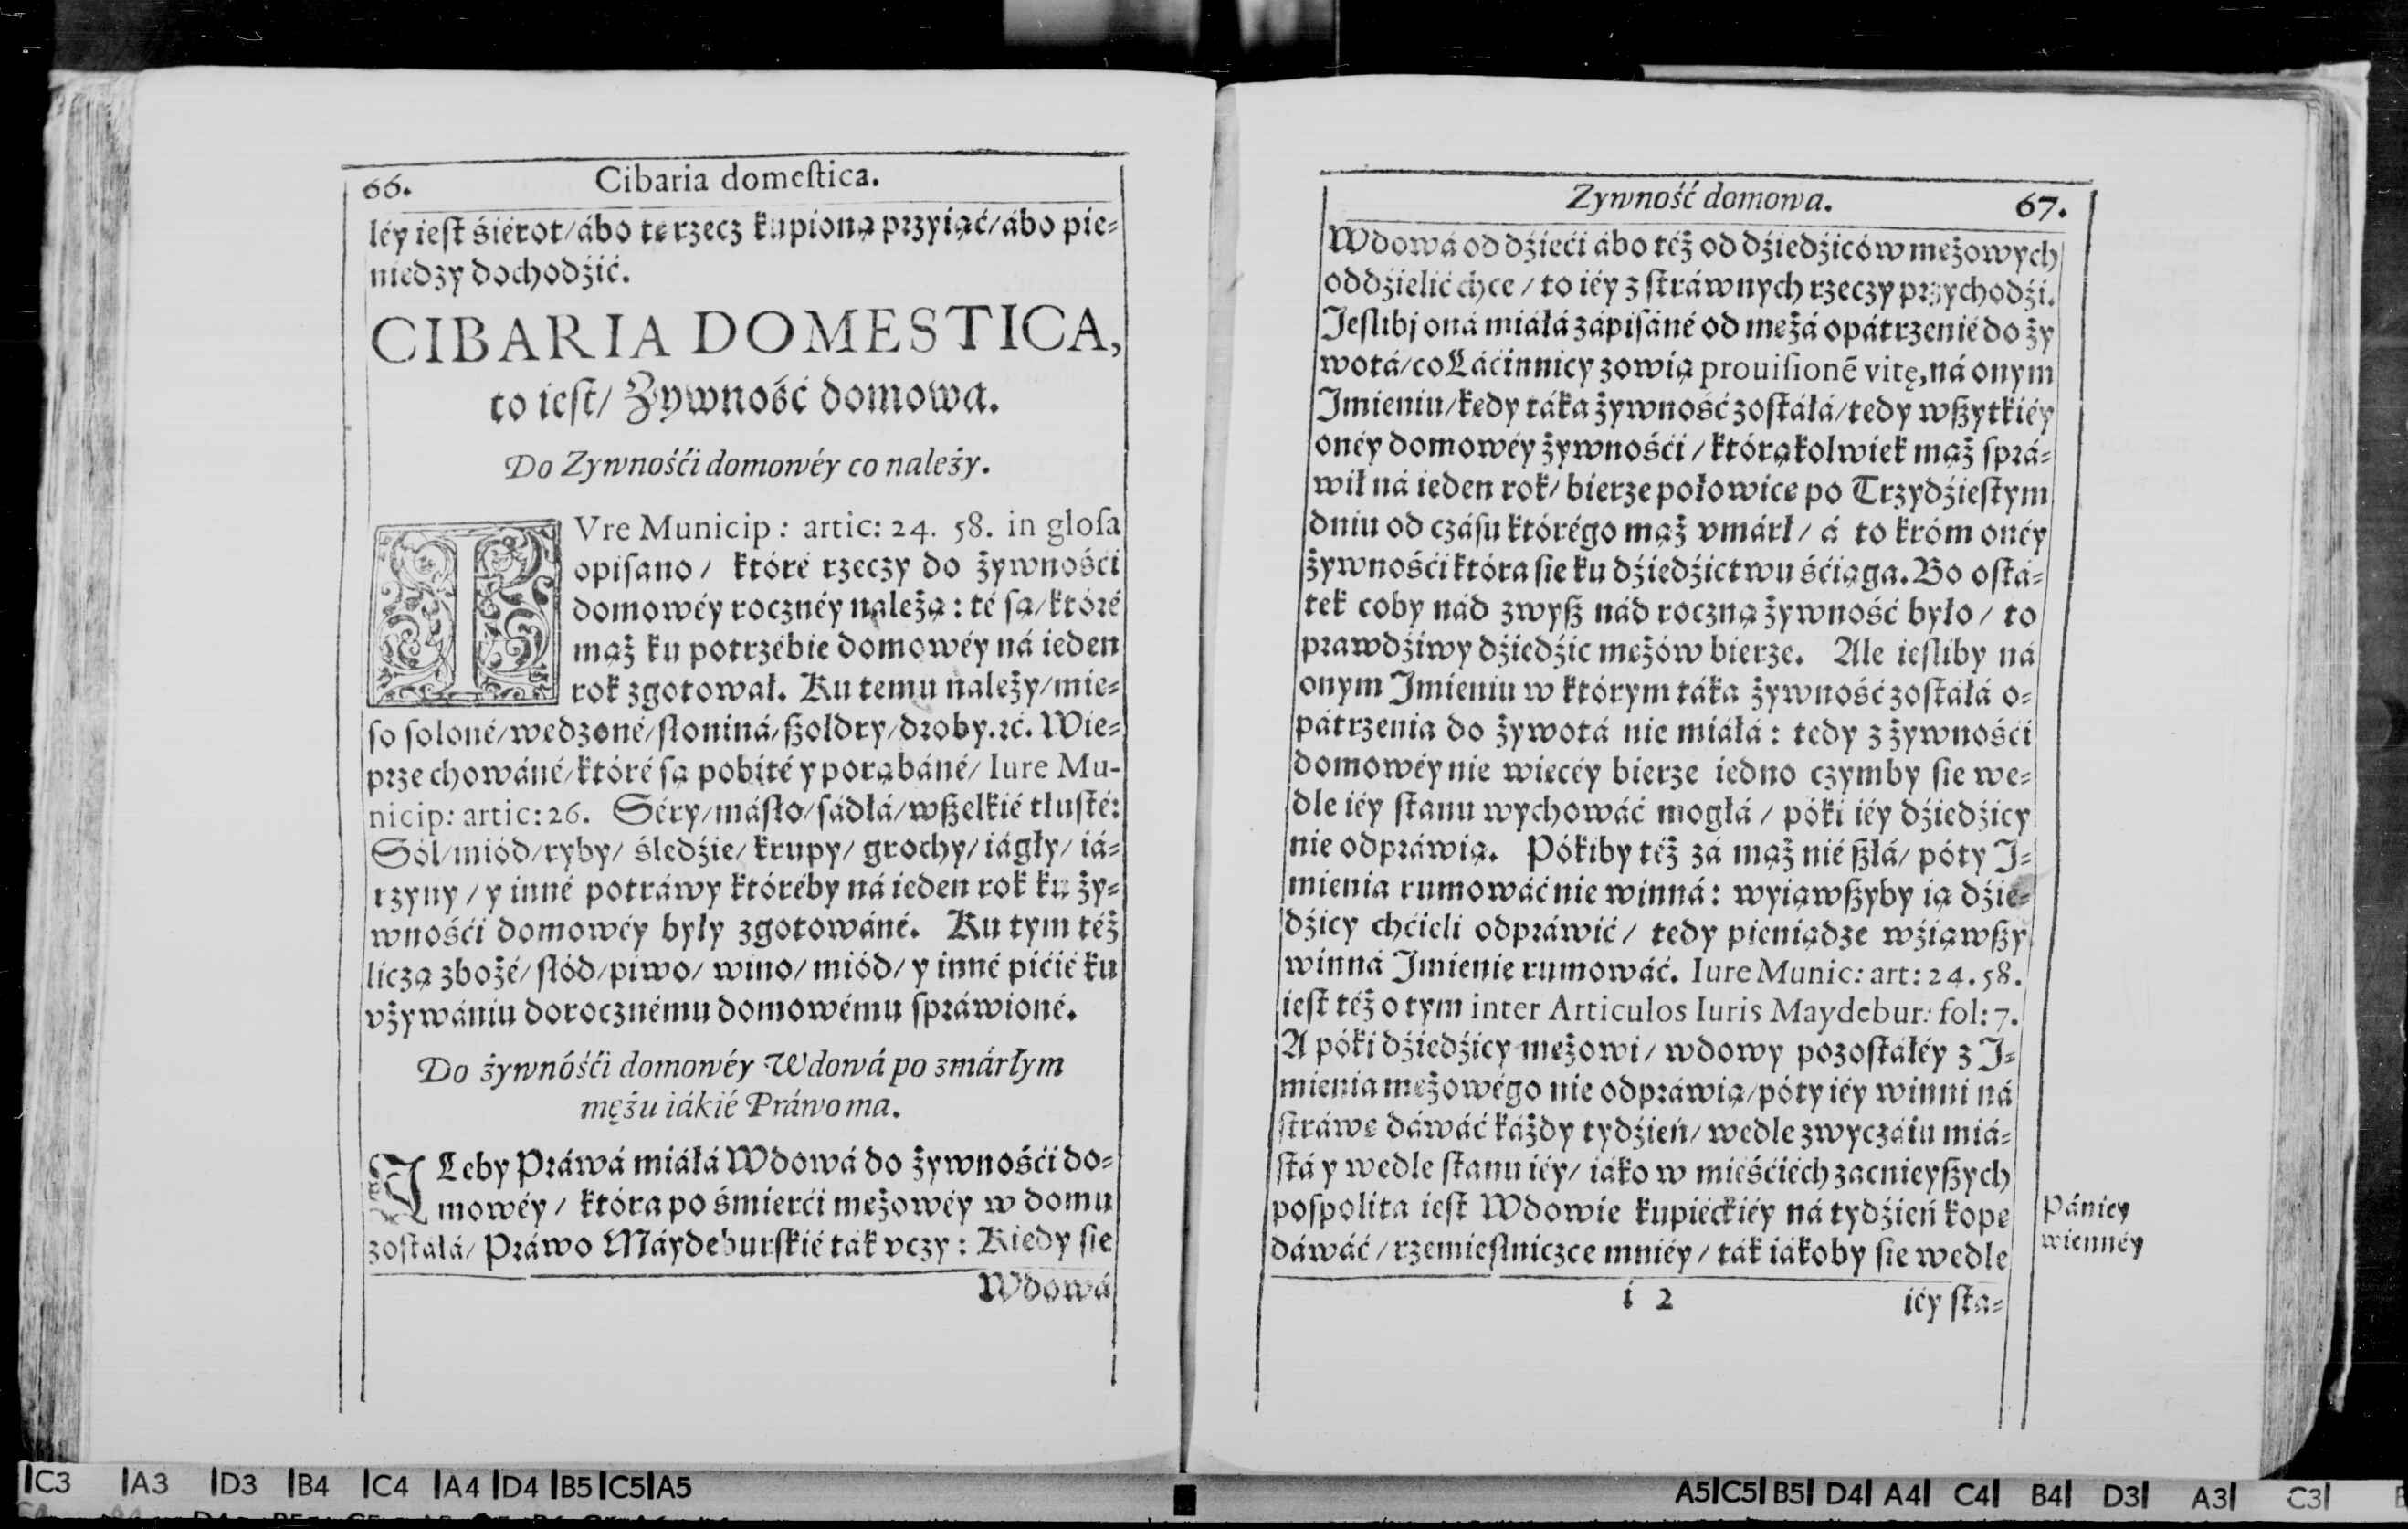 66. Cibaria domeſtica.
léy ieſt śiérot/ ábo tę rzecz kupioną przyiąć/ ábo pie-
niedzy dochodźić.
CIBARIA DOMESTICA,
to ieſt/ Zywność domowa.
Do Zywnośći domowéy co należy.
IVre Municip: artic: 24. 58. in gloſa
opiſano/ któré rzeczy do żywnośći
domowéy rocznéy należą: té ſą/ któré
mąż ku potrzébie domowéy ná ieden
rok zgotował. Ku temu należy/ mię-
ſo ſoloné/ wędzoné/ ſłoniná/ ßołdry/ droby. ꝛć. Wie-
prze chowáné/ któré ſą pobité y porąbáné/ Iure Mu-
nicip: artic: 26. Séry/ máſło/ ſádłá/ wßelkié tłuſté:
Sól/ miód/ ryby/ śledźie/ krupy/ grochy/ iágły/ iá-
rzyny/ y inné potráwy któréby ná ieden rok ku ży-
wnośći domowéy były zgotowáné. Ku tym téż
liczą zbożé/ ſłód/ piwo/ wino/ miód/ y inné pićié ku
vżywániu dorocznému domowému ſpráwioné.
Do żywnóśći domowéy Wdowá po zmárłym
mężu iákié Práwo ma.
ILeby Práwá miáłá Wdowá do żywnośći do-
mowéy/ która po śmierći mężowéy w domu
zoſtáłá/ Práwo Máydeburſkié ták vczy: Kiedy ſie
Wdowá
Zywność domowa. 67.
Wdowá od dźieći ábo téż od dźiedźiców mężowych
oddźielić chce/ to iéy z ſtráwnych rzeczy przychodźi.
Jeſlibj oná miáłá zápiſáné od mężá opátrzenié do ży
wotá/ co Láćinnicy zowią prouiſionē vitę, ná onym
Jmieniu/ kędy táka żywność zoſtáłá/ tedy wßytkiéy
onéy domowéy żywnośći/ którąkolwiek mąż ſprá-
wił ná ieden rok/ bierze połowicę po Trzydźieſtym
dniu od czáſu którégo mąż vmárł/ á to króm onéy
żywnośći która ſie ku dźiedźictwu śćiąga. Bo oſtá-
tek coby nád zwyß nád roczną żywność było/ to
prawdźiwy dźiedźic mężów bierze. Ale ieſliby ná
onym Jmieniu w którym táka żywność zoſtáłá o-
pátrzenia do żywotá nie miáłá: tedy z żywnośći
domowéy nie więcéy bierze iedno czymby ſie we-
dle iéy ſtanu wychowáć mogłá/ póki iéy dźiedźicy
nie odpráwią. Pókiby téż zá mąż nié ßłá/ póty J-
mienia rumowáć nie winná: wyiąwßyby ią dźie-
dźicy chćieli odpráwić/ tedy pieniądze wźiąwßy
winná Jmienie rumowáć. Iure Munic: art: 24. 58.
ieſt téż o tym inter Articulos Iuris Maydebur: fol: 7.
A póki dźiedźicy mężowi/ wdowy pozoſtáłéy z J-
mienia mężowégo nie odpráwią/ póty iéy winni ná
ſtráwę dáwáć káżdy tydźień/ wedle zwyczáiu miá-
ſtá y wedle ſtanu iéy/ iáko w mieśćiéch zacnieyßych
poſpolita ieſt Wdowie kupiéckiéy ná tydźień kopę
dáwáć/ rzemieſlniczce mniéy/ ták iákoby ſie wedle
Pániey
wiennéy
i 2 iéy ſta-
C3 A3 D3 B4 C4 A4 D4 B5 C5 A5
A5 C5 B5 D4 A4 C4 B4 D3 A3 C3